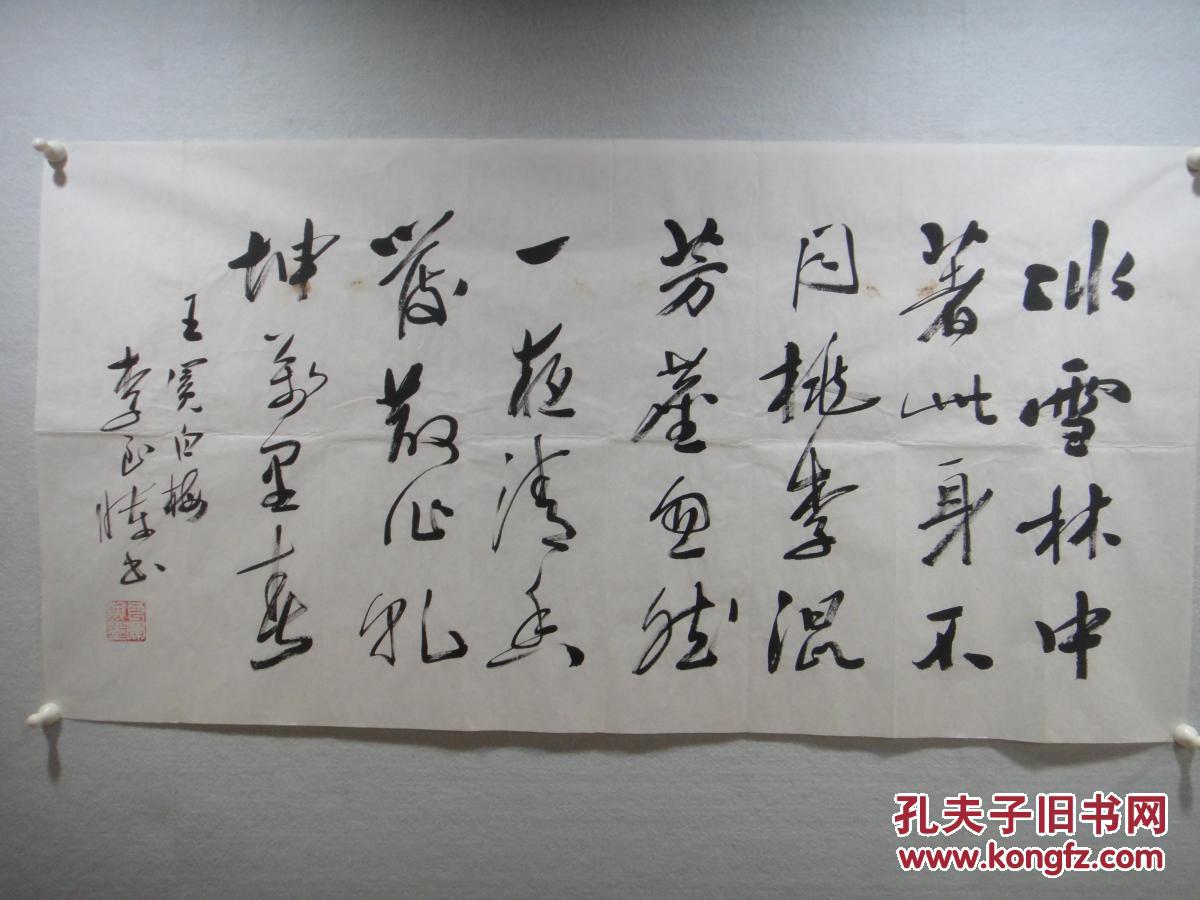 冰雪林中
著此身不
同桃李混
芳塵忽然
一夜清香
發散作乾
坤萬里春
王冕白梅
李書
孔夫子旧书网
www.kongfz.com